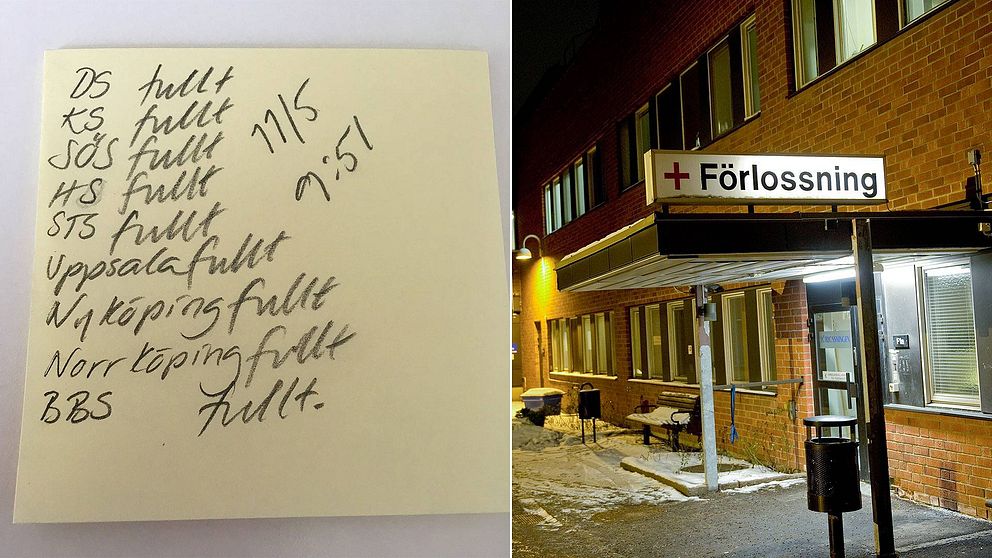 DS fullt
KS fullt
SÖS fullt
HS fullt
STS fullt
Uppsala fullt
Nyköping fullt
Norrköping fullt
BBS fullt.
11/5
9:51
+ Förlossning